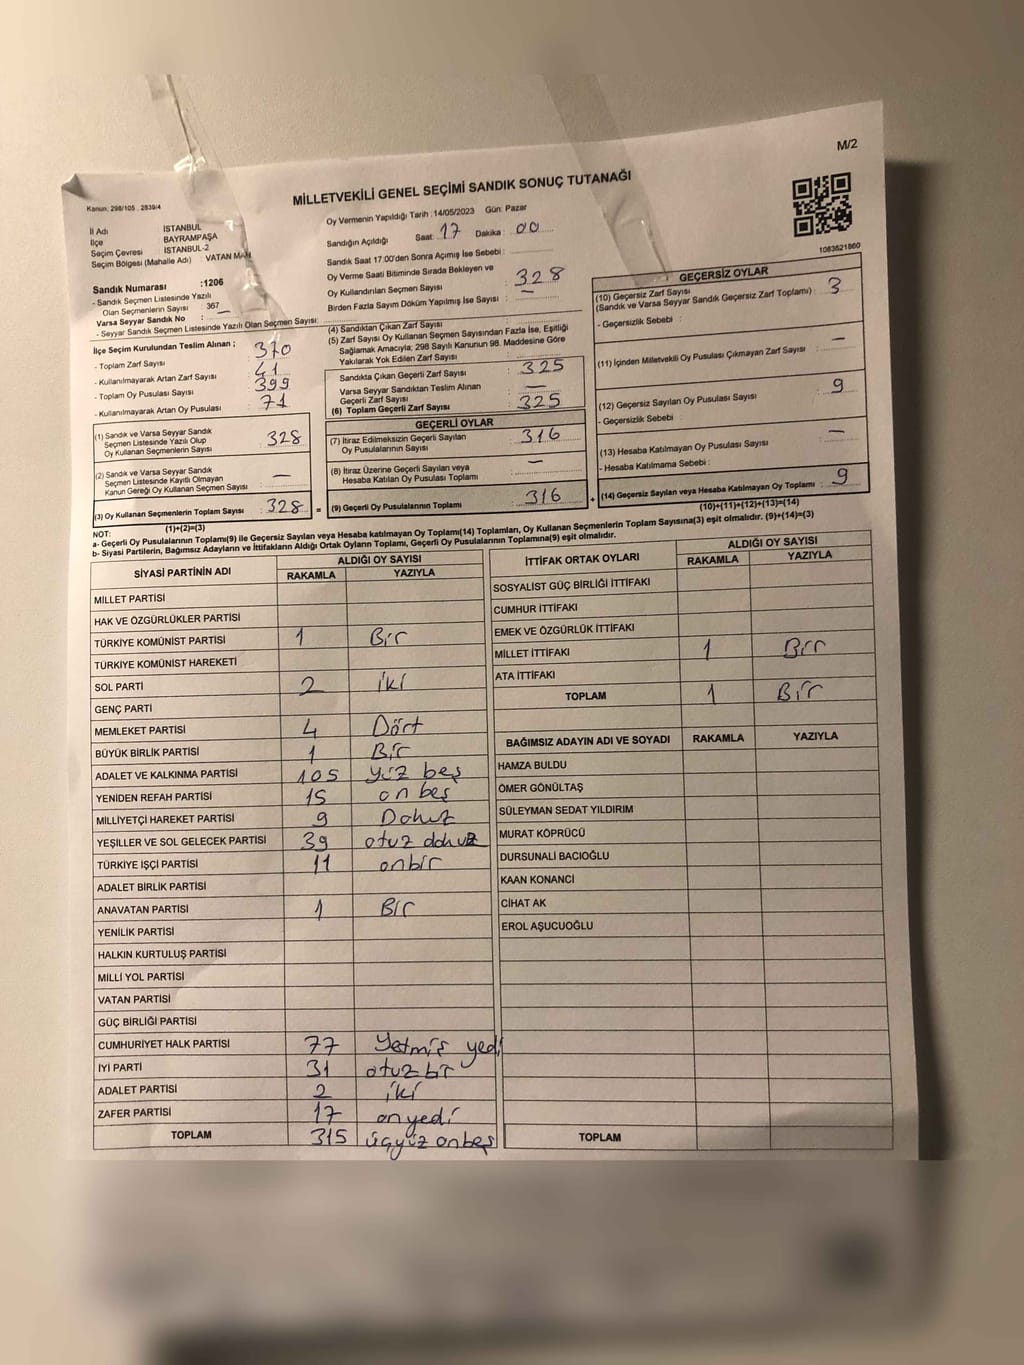 M/2
MİLLETVEKİLİ GENEL SEÇİMİ SANDIK SONUÇ TUTANAĞI
Kanun: 298/105 . 2839/4
1083621860
İl Adı İSTANBUL
İlçe BAYRAMPAŞA
Seçim Çevresi İSTANBUL-2
Seçim Bölgesi (Mahalle Adı) : VATAN MAH
Sandık Numarası :1206
- Sandık Seçmen Listesinde Yazılı
Olan Seçmenlerin Sayısı : 367
Varsa Seyyar Sandık No : —
- Seyyar Sandık Seçmen Listesinde Yazılı Olan Seçmen Sayısı:
Oy Vermenin Yapıldığı Tarih :14/05/2023 Gün: Pazar
Sandığın Açıldığı Saat: 17 Dakika : 00
Sandık Saat 17.00'den Sonra Açımış İse Sebebi :
Oy Verme Saati Bitiminde Sırada Bekleyen ve
Oy Kullandırılan Seçmen Sayısı : 328
Birden Fazla Sayım Döküm Yapılmış İse Sayısı : —
İlçe Seçim Kurulundan Teslim Alınan ;
- Toplam Zarf Sayısı : 370
- Kullanılmayarak Artan Zarf Sayısı : 41
- Toplam Oy Pusulası Sayısı : 399
- Kullanılmayarak Artan Oy Pusulası : 71
(1) Sandık ve Varsa Seyyar Sandık
Seçmen Listesinde Yazılı Olup
Oy Kullanan Seçmenlerin Sayısı : 328
(2) Sandık ve Varsa Seyyar Sandık
Seçmen Listesinde Kayıtlı Olmayan
Kanun Gereği Oy Kullanan Seçmen Sayısı : —
(3) Oy Kullanan Seçmenlerin Toplam Sayısı : 328 =
(1)+(2)=(3)
(4) Sandıktan Çıkan Zarf Sayısı :
(5) Zarf Sayısı Oy Kullanan Seçmen Sayısından Fazla İse, Eşitliği
Sağlamak Amacıyla; 298 Sayılı Kanunun 98. Maddesine Göre
Yakılarak Yok Edilen Zarf Sayısı :
Sandıkta Çıkan Geçerli Zarf Sayısı : 325
Varsa Seyyar Sandıktan Teslim Alınan
Geçerli Zarf Sayısı : —
(6) Toplam Geçerli Zarf Sayısı : 325
GEÇERLİ OYLAR
(7) İtiraz Edilmeksizin Geçerli Sayılan
Oy Pusulası Sayısı : 316
(8) İtiraz Üzerine Geçerli Sayılan veya
Hesaba Katılan Oy Pusulası Toplamı : —
(9) Geçerli Oy Pusulalarının Toplamı : 316 +
GEÇERSİZ OYLAR
(10) Geçersiz Zarf Sayısı
(Sandık ve Varsa Seyyar Sandık Geçersiz Zarf Toplamı) : 3
- Geçersizlik Sebebi :
(11) İçinden Milletvekili Oy Pusulası Çıkmayan Zarf Sayısı : —
(12) Geçersiz Sayılan Oy Pusulası Sayısı : 9
- Geçersizlik Sebebi :
(13) Hesaba Katılmayan Oy Pusulası Sayısı : —
- Hesaba Katılmama Sebebi :
(14) Geçersiz Sayılan veya Hesaba Katılmayan Oy Pusulası Toplamı : 9
(10)+(11)+(12)+(13)=(14)
NOT:
a- Geçerli Oy Pusulalarının Toplamı(9) ile Geçersiz Sayılan veya Hesaba katılmayan Oy Toplamı(14) Toplamları, Oy Kullanan Seçmenlerin Toplam Sayısına(3) eşit olmalıdır. (9)+(14)=(3)
b- Siyasi Partilerin, Bağımsız Adayların ve İttifakların Aldığı Ortak Oyların Toplamı, Geçerli Oy Pusulalarının Toplamına(9) eşit olmalıdır.
SİYASİ PARTİNİN ADI ALDIĞI OY SAYISI
RAKAMLA YAZIYLA
MİLLET PARTİSİ
HAK VE ÖZGÜRLÜKLER PARTİSİ
TÜRKİYE KOMÜNİST PARTİSİ 1 Bir
TÜRKİYE KOMÜNİST HAREKETİ
SOL PARTİ 2 iki
GENÇ PARTİ
MEMLEKET PARTİSİ 4 Dört
BÜYÜK BİRLİK PARTİSİ 1 Bir
ADALET VE KALKINMA PARTİSİ 105 yüz beş
YENİDEN REFAH PARTİSİ 15 on beş
MİLLİYETÇİ HAREKET PARTİSİ 9 Dokuz
YEŞİLLER VE SOL GELECEK PARTİSİ 39 otuz dokuz
TÜRKİYE İŞÇİ PARTİSİ 11 onbir
ADALET BİRLİK PARTİSİ
ANAVATAN PARTİSİ 1 Bir
YENİLİK PARTİSİ
HALKIN KURTULUŞ PARTİSİ
MİLLİ YOL PARTİSİ
VATAN PARTİSİ
GÜÇ BİRLİĞİ PARTİSİ
CUMHURİYET HALK PARTİSİ 77 Yetmiş yedi
İYİ PARTİ 31 otuz bir
ADALET PARTİSİ 2 iki
ZAFER PARTİSİ 17 onyedi
TOPLAM 315 üçyüz onbeş
İTTİFAK ORTAK OYLARI ALDIĞI OY SAYISI
RAKAMLA YAZIYLA
SOSYALİST GÜÇ BİRLİĞİ İTTİFAKI
CUMHUR İTTİFAKI
EMEK VE ÖZGÜRLÜK İTTİFAKI
MİLLET İTTİFAKI 1 Bir
ATA İTTİFAKI
TOPLAM 1 Bir
BAĞIMSIZ ADAYIN ADI VE SOYADI RAKAMLA YAZIYLA
HAMZA BULDU
ÖMER GÖNÜLTAŞ
SÜLEYMAN SEDAT YILDIRIM
MURAT KÖPRÜCÜ
DURSUNALİ BACIOĞLU
KAAN KONANCİ
CİHAT AK
EROL AŞUCUOĞLU
TOPLAM